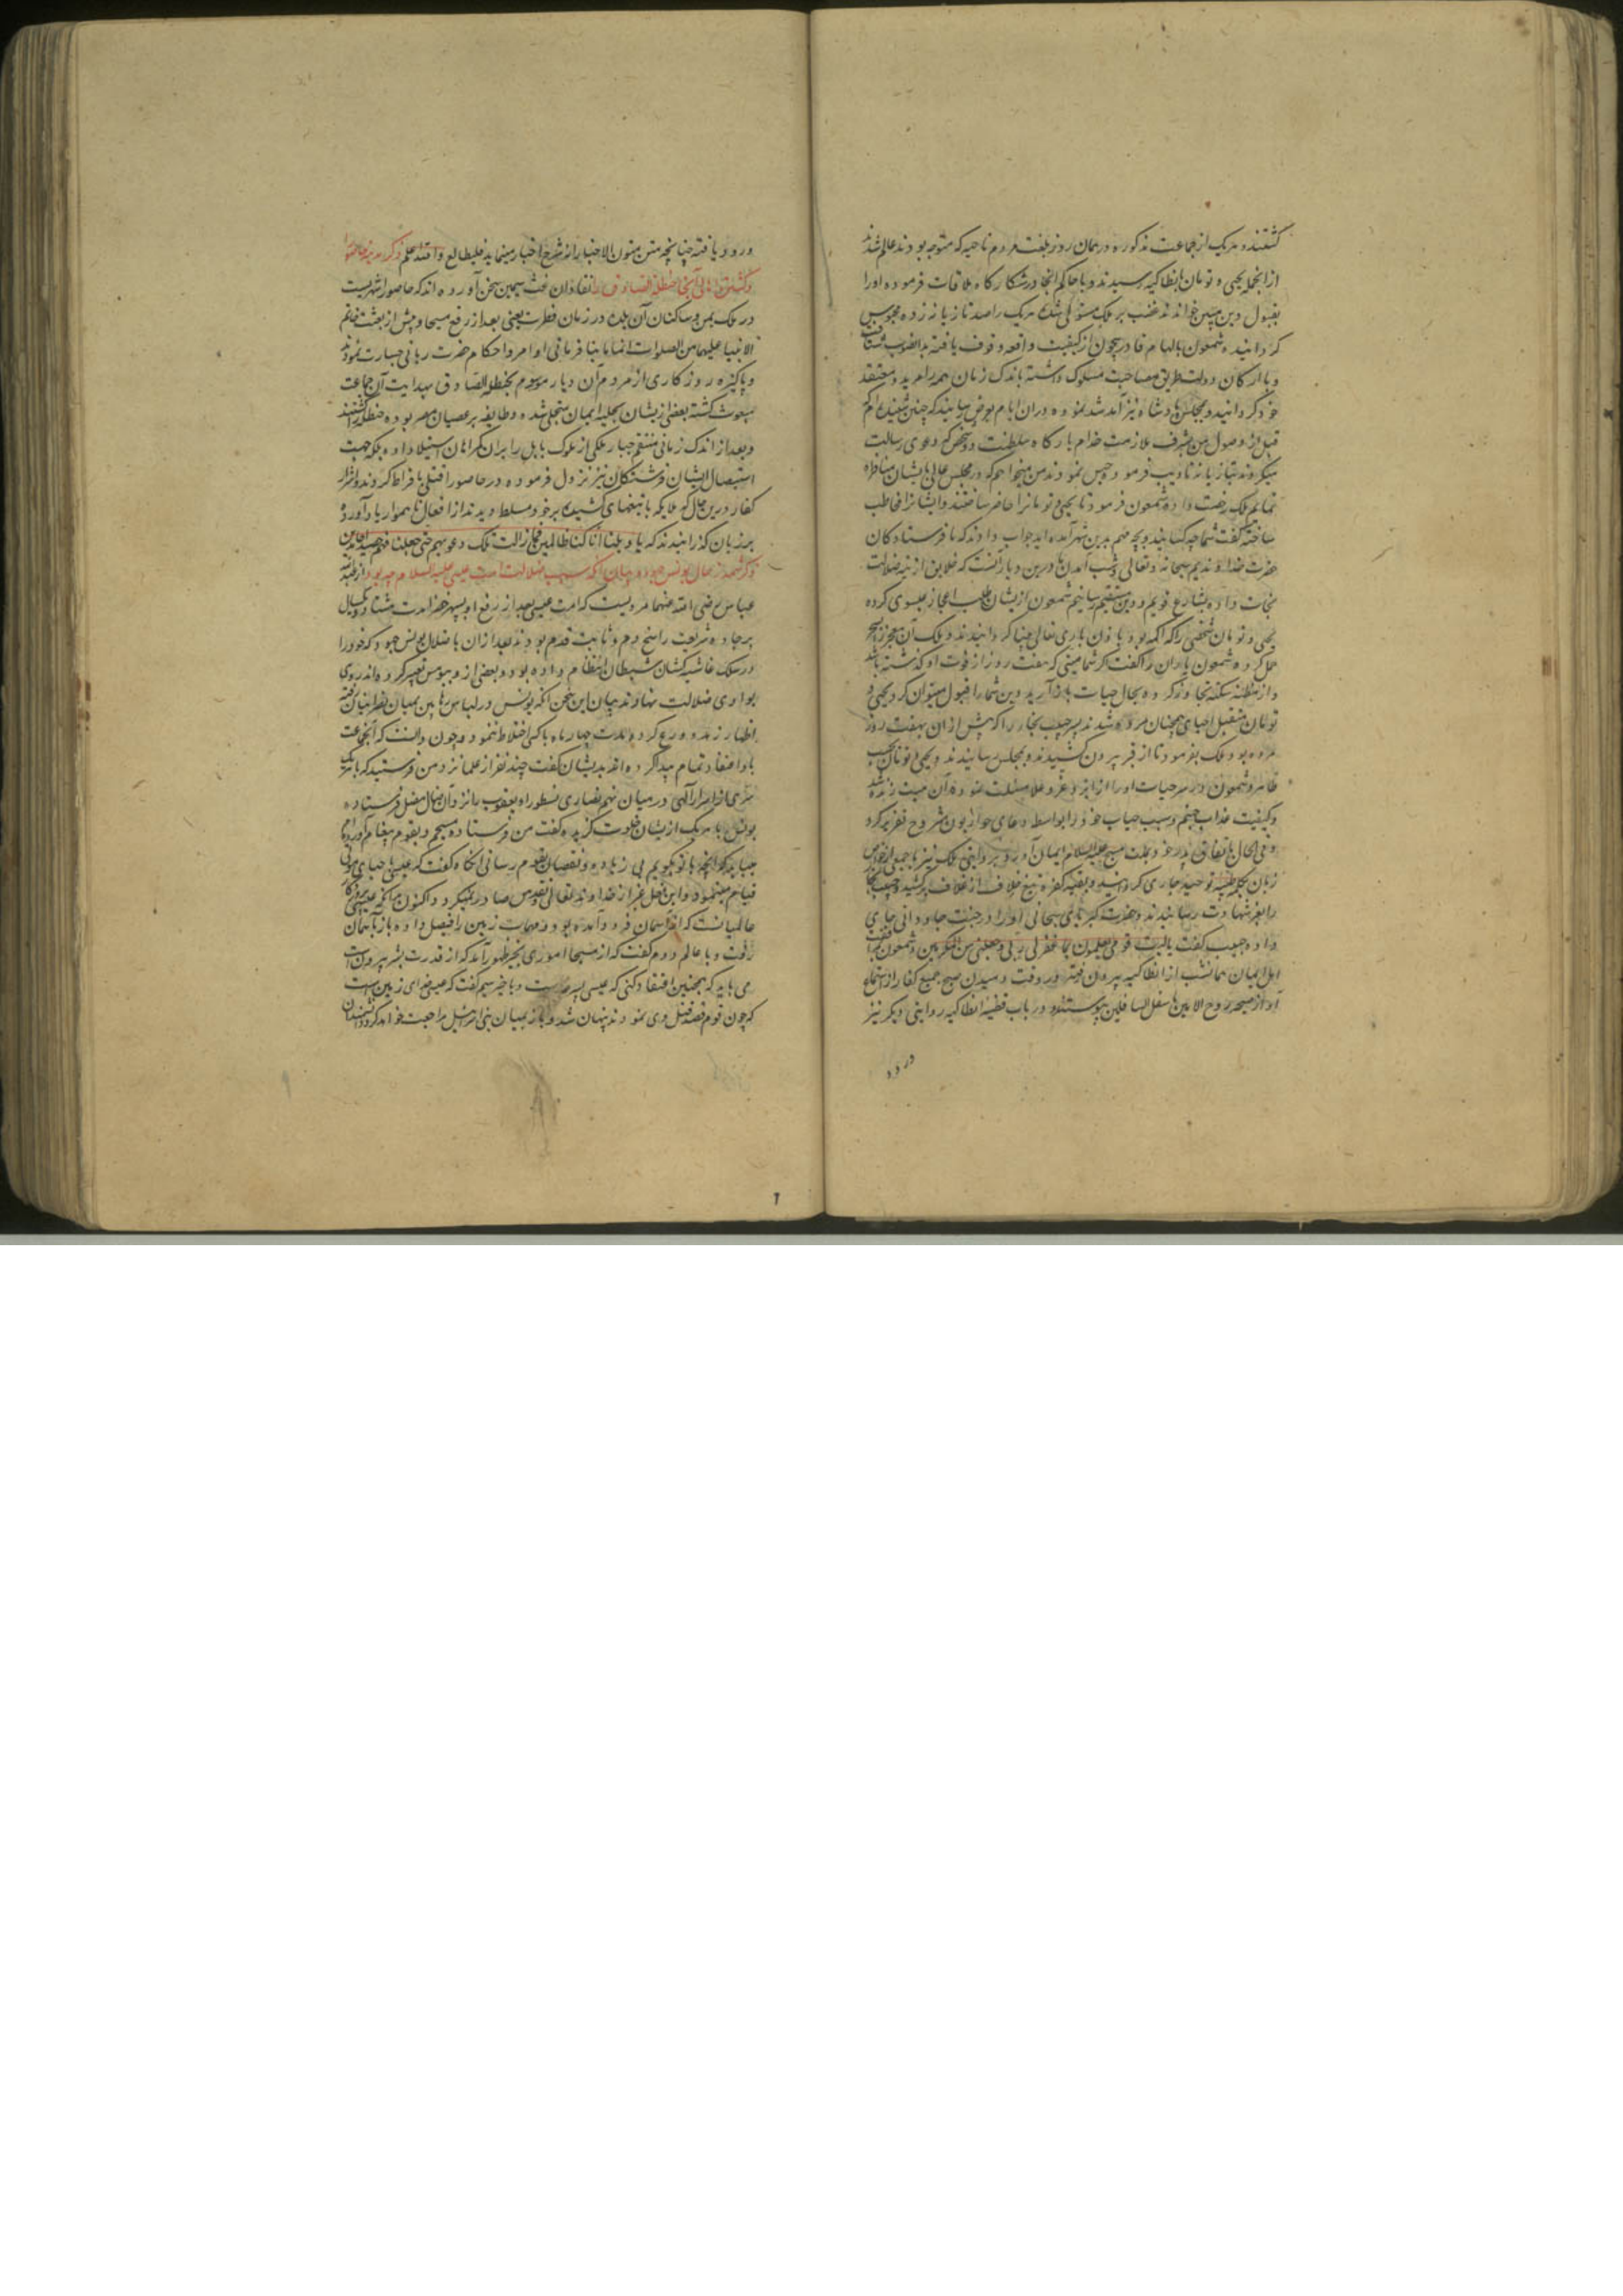 گشتند و هر یک از جماعت مذکوره در همان روز بلغت مردم ناحیه که متوجه بودند عالم شدند
از انجمله یحیی و تومان بانطاکیه رسیدند و با حاکم انجا در شکارگاه ملاقات فرموده او را
بقبول دین مبین خواندند غضب بر ملک مستولی شده هر یک را صد تازیانه زده محبوس
گردانید و شمعون بالهام قادر بیچون از کیفیت واقعه وقوف یافته بدانصوب شتافت
و با ارکان دولت طریق مصاحبت مسلوک داشته باندک زمان همه را مرید و معتقد
خود گردانید و بمجلس پادشاه نیز آمد شد نموده در ان ایام بعرض رسانید که چنین شنیده ام که
قبل از وصول من بشرف ملازمت خدام بارگاه سلطنت دو شخص که دعوی رسالت
میکردند بتازیانه تادیب فرموده حبس نمودند من میخواهم که در مجلس عالی با ایشان مناظره
نمایم ملک رخصت داده شمعون فرمود تا یحیی و تومان را حاضر ساختند و ایشانرا مخاطب
ساخته گفت شما چه کسانید و بچه مهم بدین شهر آمده اید جواب دادند که ما فرستادگان
حضرت خداوندیم سبحانه و تعالی و سبب آمدن ما درین دیار آنست که خلایق از تیه ضلالت
نجات داده بشارع قویم و دین مستقیم رسانیم شمعون ازیشان طلب اعجاز عیسوی کرده
یحیی و تومان شخصی را که اکمه بود باذن باری تعالی بینا گردانیدند و ملک آن معجز را بسحر
حمل کرده شمعون یاران را گفت اگر شما میتی که هفت روز از فوت او گذشته باشد
و از مظنه سکته تجاوز کرده بحال حیات باز آرید دین شما را قبول میتوان کرد یحیی و
تومان متقبل احیای چنان مرده شدند پسر حبیب نجار را که پیش از ان بهفت روز
مرده بود ملک بفرمود تا از قبر بیرون کشیدند و بمجلس رسانیدند و یحیی و تومان بحسب
ظاهر و شمعون در سر حیات او را از ایزد عز و علا مسئلت نموده آن میت زنده شد
و کیفیت عذاب جهنم و سبب حیات خود را بواسطه دعای حواریون مشروح تقریر کرد
و فی الحال باتفاق پدر خود بملت مسیح علیه السلام ایمان آورد و بروایتی ملک نیز با جمعی از خواص
زبان بکلمه طیبه توحید جاری گردانید و بقیه کفره تیغ خلاف از غلاف برکشیده حبیب نجار
را بعز شهادت رسانیدند و حضرت کبریای سبحانی او را در جنت جاودانی جای
داده حبیب گفت یا لیت قومی یعلمون بما غفر لی ربی و جعلنی من المکرمین و شمعون برفقت
اهل ایمان همانشب از انطاکیه بیرون رفته در وقت دمیدن صبح جمیع کفار از استماع
آواز صیحه روح الامین باسفل السافلین پیوستند و در باب قضیه انطاکیه روایتی دیگر نیز
ورود
ورود یافته چنانچه متن متون الاخبار از شرح اخبار مینماید فلیطالع و الله اعلم
ذکر
در ملک یمن و ساکنان آن بلده در زمان فطرت یعنی بعد از رفع مسیحا و پیش از بعثت خاتم
الانبیا علیهما من الصلوات انماها بنافرمانی اوامر و احکام حضرت ربانی جسارت نمودند
و پاکیزه روزگاری از مردم آن دیار موسوم بحنظلة الصادق بهدایت آن جماعت
مبعوث گشته بعضی ازیشان بحلیه ایمان متحلی شده و طایفه بر عصیان مصر بوده حنظله را کشتند
و بعد از اندک زمانی منتقم جبار ملکی از ملوک بابل را بران گمراهان استیلا داده بلکه جهت
استیصال ایشان فرشتگان نیز نزول فرموده در حاصورا قتلی بافراط کردند و اشرار
کفار درین حال که ملایکه با تیغهای کشیده بر خود مسلط دیدند از افعال ناهموار یاد آورده
بر زبان گذرانیدند که یا ویلنا انا کنا ظالمین فما زالت تلک دعویهم حتی جعلناهم حصیدا خامدین
ذکر شمه از حال یونس جهود و بیان آنکه سبب ضلالت امت عیسی علیه السلام چه بود از عبد الله
عباس رضی الله عنهما مرویست که امت عیسی بعد از رفع او بسپهر خضرا مدت هشتاد و یکسال
بر جاده شریعت راسخ دم و ثابت قدم بودند بعد از ان باضلال یونس جهود که خود را
در سلک غاشیه کشان شیطان انتظام داده بود و بعضی ازو ببولس تعبیر کرده اند روی
بوادی ضلالت نهادند بیان این سخن آنکه یونس در لباس رهابین بمیان نصرانیان رفته
اظهار زهد و ورع کرد و مدت چهار ماه با کسی اختلاط ننمود و چون دانست که آنجماعت
باو اعتقاد تمام پیدا کرده اند بدیشان گفت چند نفر از علما نزد من فرستید که با هر یک
سری از اسرار الهی در میان نهم نصاری نسطور و یعقوب را نزد آن ضال مضل فرستاده
یونس با هر یک ازیشان خلوت گزیده گفت من فرستاده مسیحم و بقوم پیغام آورده ام
میباید که آنچه با تو بگویم بی زیاده و نقصان بقوم رسانی آنگاه گفت که عیسی باحیای موتی
قیام مینمود و این فعل غیر از خداوند تعالی و تقدس صادر نمیگردد اکنون بدانکه عیسی پروردگار
عالمیانست که از آسمان فرود آمده بود و مهمات زمین را فیصل داده باز بآسمان
رفت و با عالم دوم گفت که از مسیحا اموری بحیز ظهور آمد که از قدرت بشر بیرونست
می باید که همچنین اعتقاد کنی که عیسی پسر خداست و با حبر سیم گفت که عیسی خدای زمین است
که چون قوم قصد قتل وی نمودند پنهان شد و باز بمیان بنی اسرائیل مراجعت خواهد کرد